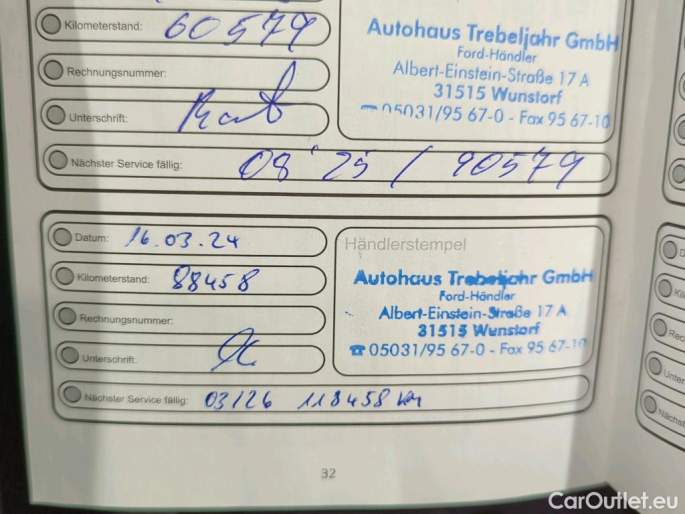 Kilometerstand: 60579
Rechnungsnummer:
Unterschrift:
Nächster Service fällig: 08 25 / 90579
Autohaus Trebeljahr GmbH
Ford-Händler
Albert-Einstein-Straße 17 A
31515 Wunstorf
05031/95 67-0 - Fax 95 67-10
Datum: 16.03.24
Kilometerstand: 88458
Rechnungsnummer:
Unterschrift:
Nächster Service fällig: 03/26 118458 km
Händlerstempel
Autohaus Trebeljahr GmbH
Ford-Händler
Albert-Einstein-Straße 17 A
31515 Wunstorf
☎ 05031/95 67-0 - Fax 95 67-10
32
CarOutlet.eu